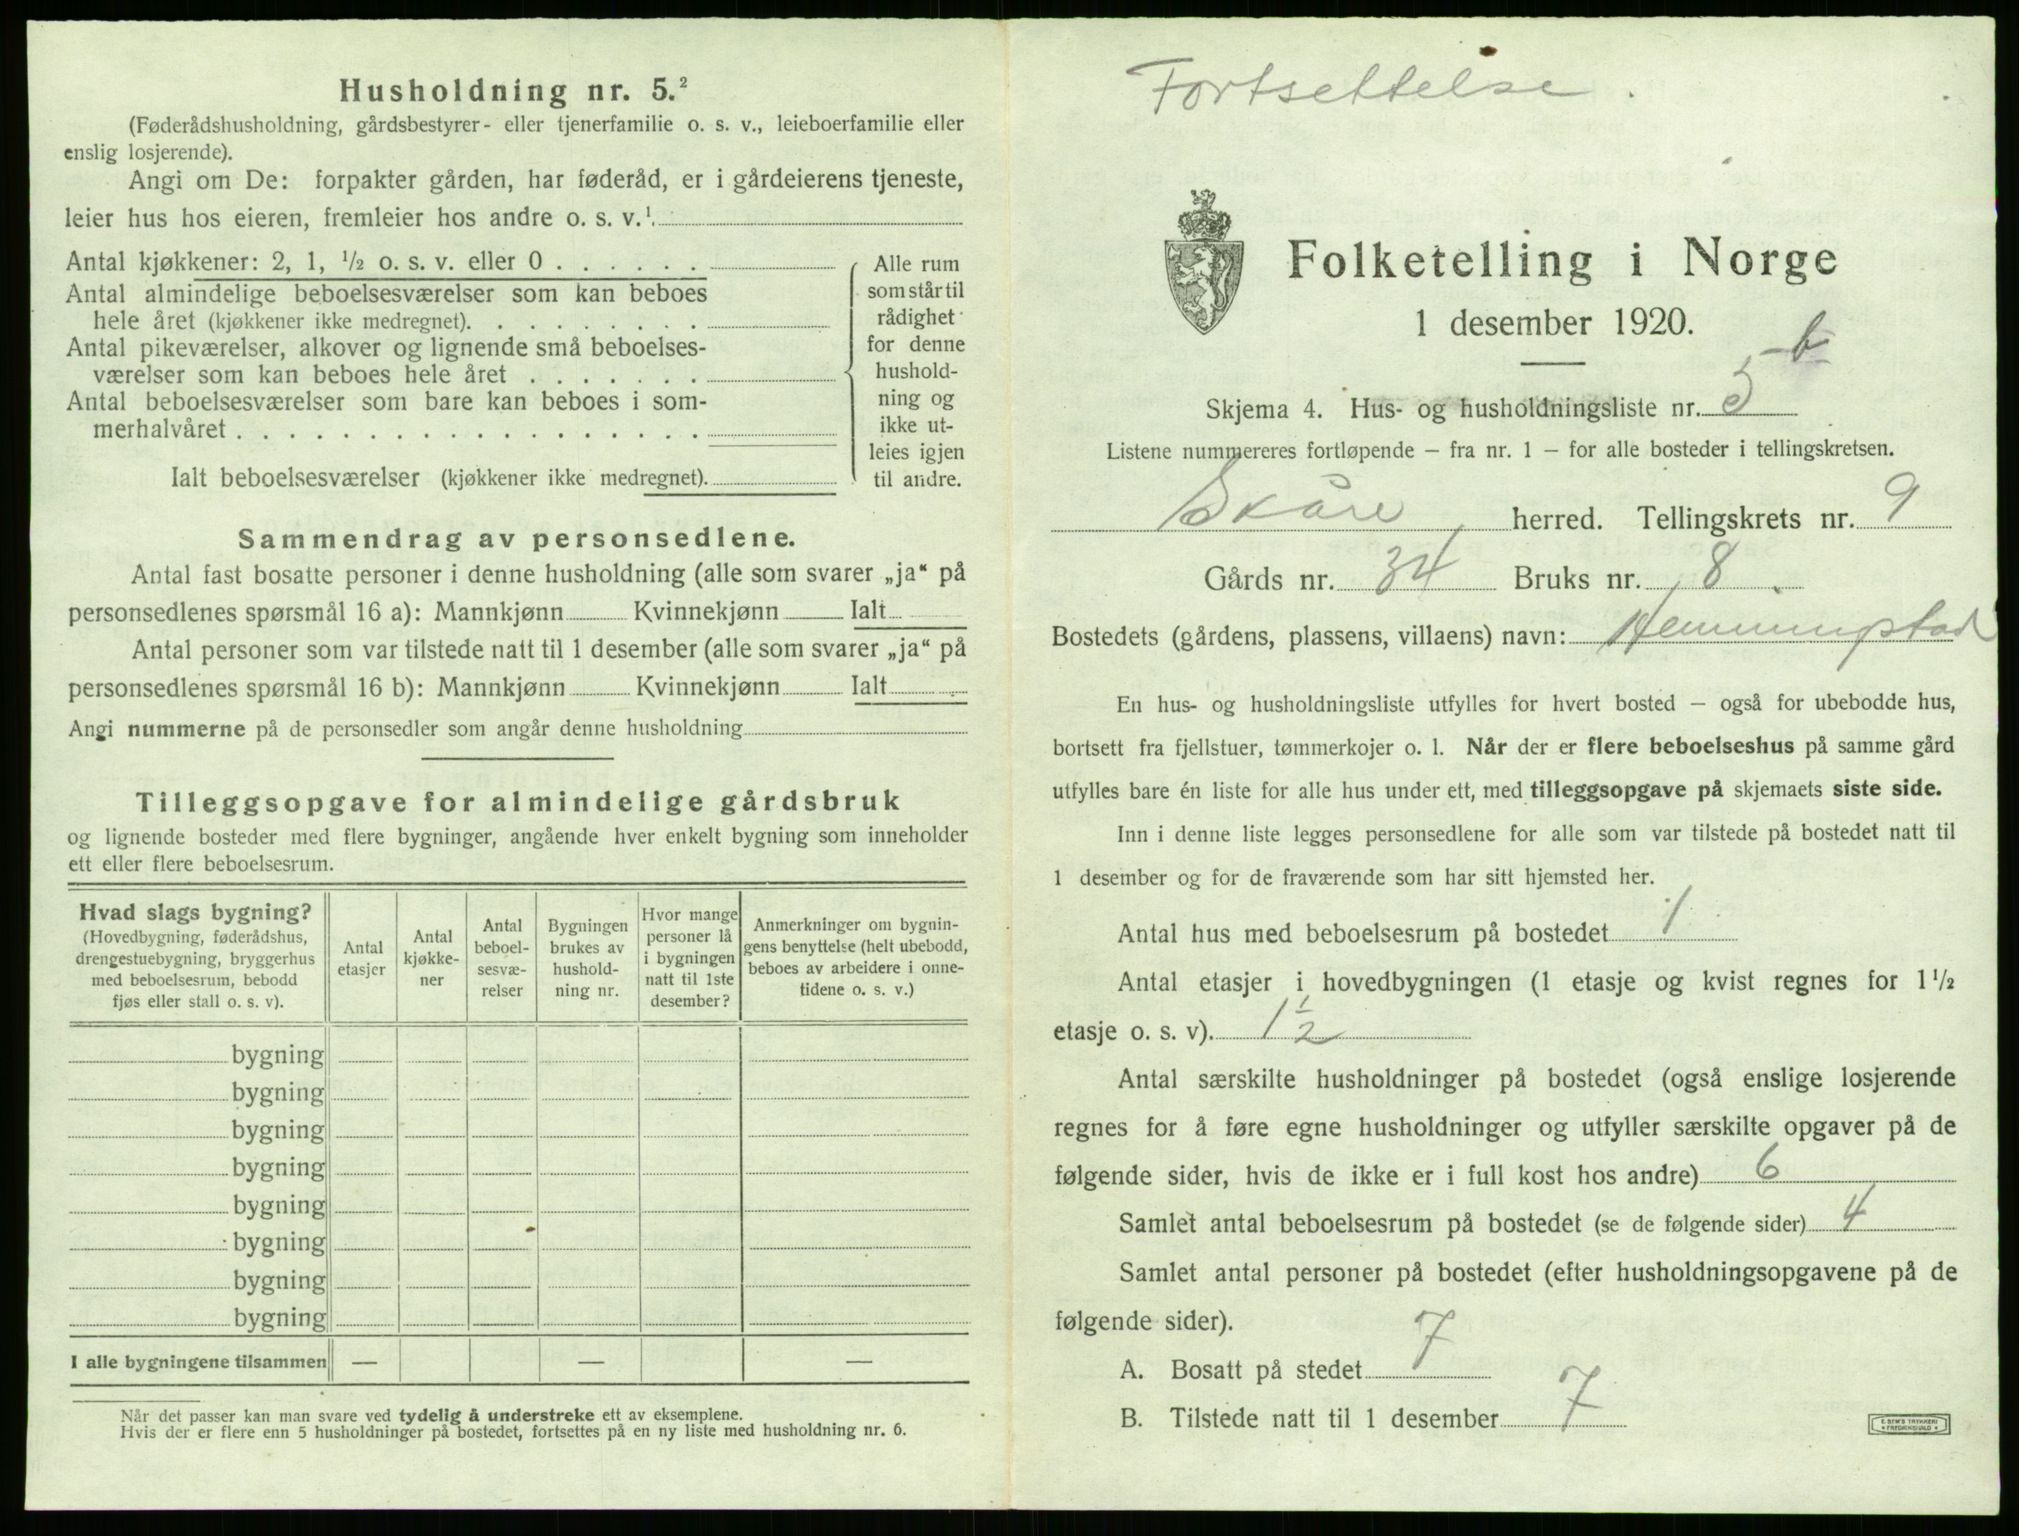 Husholdning nr. 5.²
(Føderådshusholdning, gårdsbestyrer- eller tjenerfamilie o. s. v., leieboerfamilie eller
enslig losjerende).
Angi om De: forpakter gården, har føderåd, er i gårdeierens tjeneste,
leier hus hos eieren, fremleier hos andre o. s. v.¹
Antal kjøkkener: 2, 1, ½ o. s. v. eller 0 . . . . . .
Antal almindelige beboelsesværelser som kan beboes
hele året (kjøkkener ikke medregnet). . . . . . . . .
Antal pikeværelser, alkover og lignende små beboelses-
værelser som kan beboes hele året . . . . . . .
Antal beboelsesværelser som bare kan beboes i som-
merhalvåret . . . . . . . . . . . . . . . . . .
Ialt beboelsesværelser (kjøkkener ikke medregnet).
Alle rum
som står til
rådighet
for denne
hushold-
ning og
ikke ut-
leies igjen
til andre.
Sammendrag av personsedlene.
Antal fast bosatte personer i denne husholdning (alle som svarer „ja“ på
personsedlenes spørsmål 16 a): Mannkjønn Kvinnekjønn Ialt
Antal personer som var tilstede natt til 1 desember (alle som svarer „ja“ på
personsedlenes spørsmål 16 b): Mannkjønn Kvinnekjønn Ialt
Angi nummerne på de personsedler som angår denne husholdning
Tilleggsopgave for almindelige gårdsbruk
og lignende bosteder med flere bygninger, angående hver enkelt bygning som inneholder
ett eller flere beboelsesrum.
Hvad slags bygning?
(Hovedbygning, føderådshus,
drengestuebygning, bryggerhus
med beboelsesrum, bebodd
fjøs eller stall o. s. v).
Antal
etasjer
Antal
kjøkke-
ner
Antal
beboel-
sesvæ-
relser
Bygningen
brukes av
hushold-
ning nr.
Hvor mange
personer lå
i bygningen
natt til 1ste
desember?
Anmerkninger om bygnin-
gens benyttelse (helt ubebodd,
beboes av arbeidere i onne-
tidene o. s. v.)
bygning
bygning
bygning
bygning
bygning
bygning
bygning
bygning
I alle bygningene tilsammen — — —
Når det passer kan man svare ved tydelig å understreke ett av eksemplene.
Hvis der er flere enn 5 husholdninger på bostedet, fortsettes på en ny liste med husholdning nr. 6.
Fortsettelse.
Folketelling i Norge
1 desember 1920.
Skjema 4. Hus- og husholdningsliste nr. 5 b
Listene nummereres fortløpende – fra nr. 1 – for alle bosteder i tellingskretsen.
Skåre herred. Tellingskrets nr. 9
Gårds nr. 34 Bruks nr. 8
Bostedets (gårdens, plassens, villaens) navn: Hemmingstad
En hus- og husholdningsliste utfylles for hvert bosted – også for ubebodde hus,
bortsett fra fjellstuer, tømmerkojer o. l. Når der er flere beboelseshus på samme gård
utfylles bare én liste for alle hus under ett, med tilleggsopgave på skjemaets siste side.
Inn i denne liste legges personsedlene for alle som var tilstede på bostedet natt til
1 desember og for de fraværende som har sitt hjemsted her.
Antal hus med beboelsesrum på bostedet 1
Antal etasjer i hovedbygningen (1 etasje og kvist regnes for 1½
etasje o. s. v). 1½
Antal særskilte husholdninger på bostedet (også enslige losjerende
regnes for å føre egne husholdninger og utfyller særskilte opgaver på de
følgende sider, hvis de ikke er i full kost hos andre) 6
Samlet antal beboelsesrum på bostedet (se de følgende sider) 4
Samlet antal personer på bostedet (efter husholdningsopgavene på de
følgende sider).
A. Bosatt på stedet 7
B. Tilstede natt til 1 desember 7